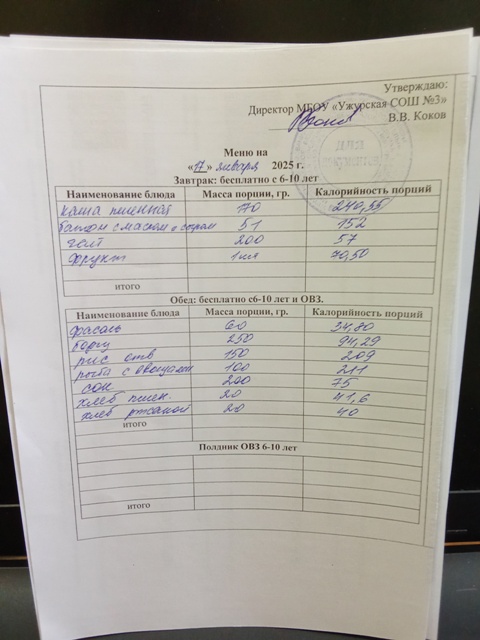 Утверждаю:
Директор МБОУ «Ужурская СОШ №3»
В.В. Коков
Меню на
«17» января 2025 г.
Завтрак: бесплатно с 6-10 лет
Наименование блюда Масса порции, гр. Калорийность порций
каша пшенная 170 240,55
батон с маслом и сыром 51 152
чай 200 57
фрукт 1 шт 70,50
итого
Обед: бесплатно с6-10 лет и ОВЗ.
Наименование блюда Масса порции, гр. Калорийность порций
фасоль 60 34,80
борщ 250 94,29
рис отв 150 209
рыба с овощами 100 211
сок 200 75
хлеб пшен. 20 41,6
хлеб ржаной 20 40
итого
Полдник ОВЗ 6-10 лет
итого